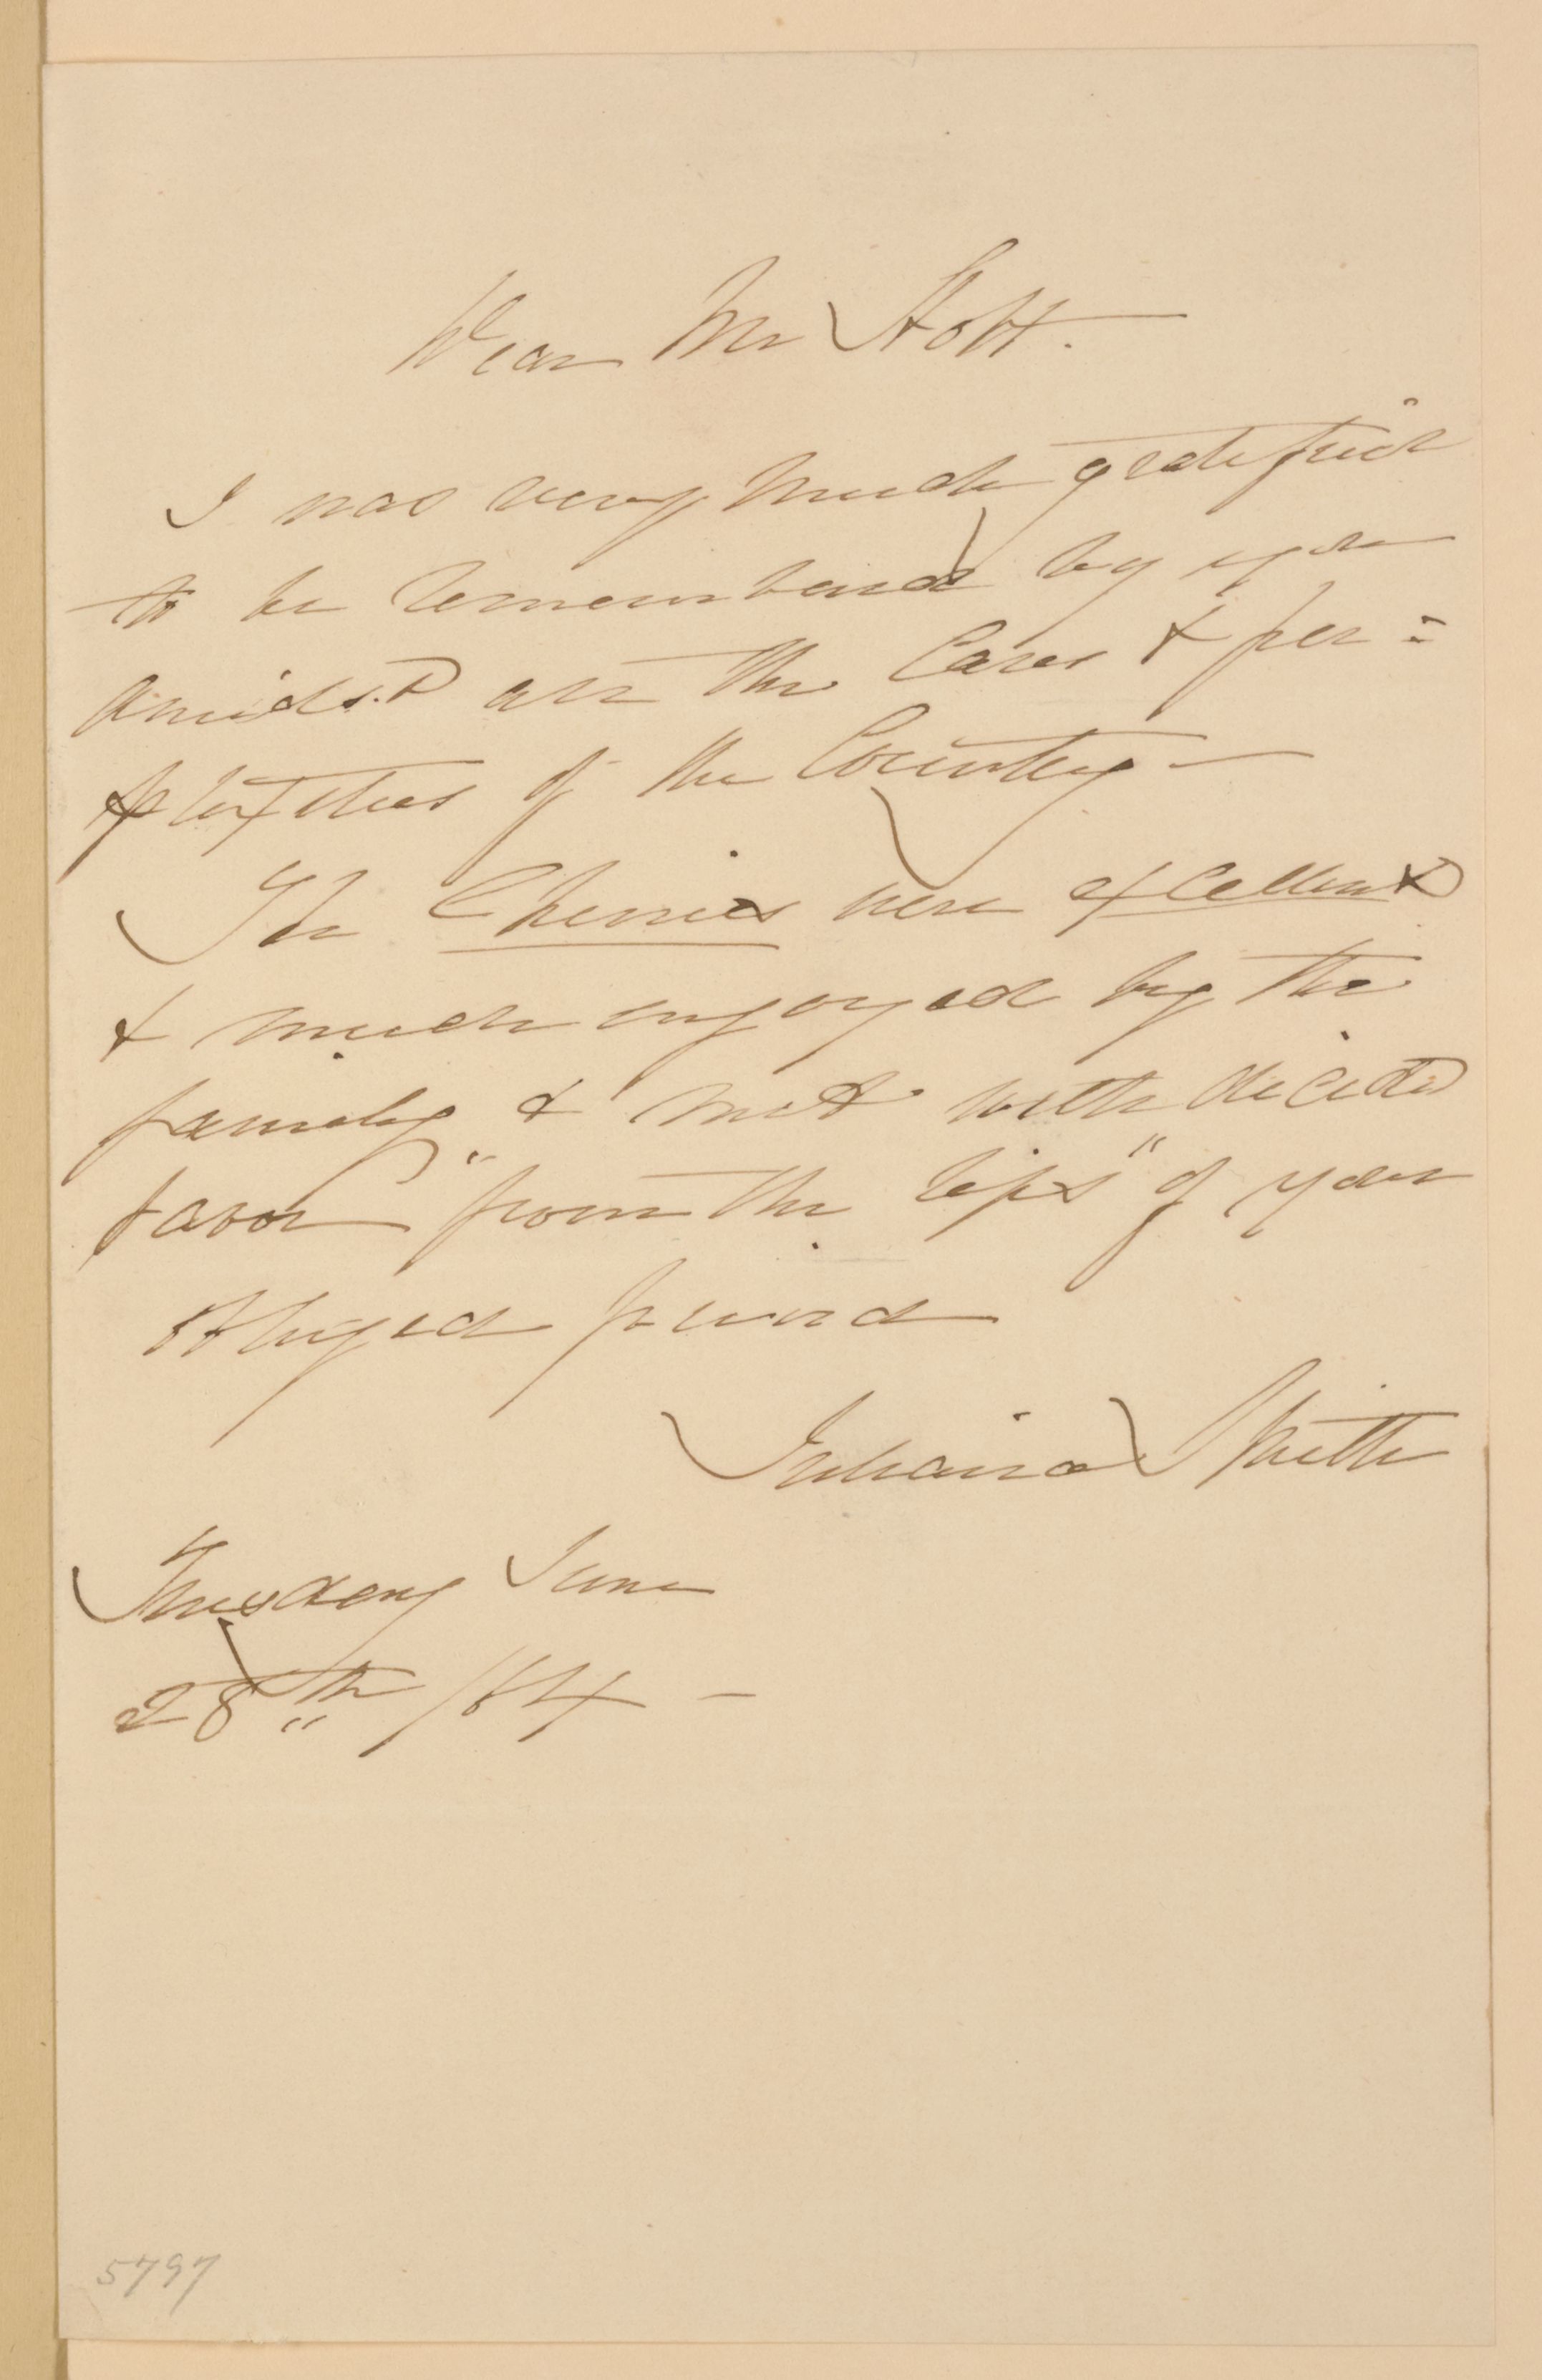 Dear Mr Holt.
I was very much gratified
to be remembered by you
amidst all the Cares & per=
plexities of the Country —
The Cherries were excellent
& much enjoyed by the
family & met with decided
favor "from the lips" of your
obliged friend
Juliana Smith
Tuesday June
28th /64 —
5797